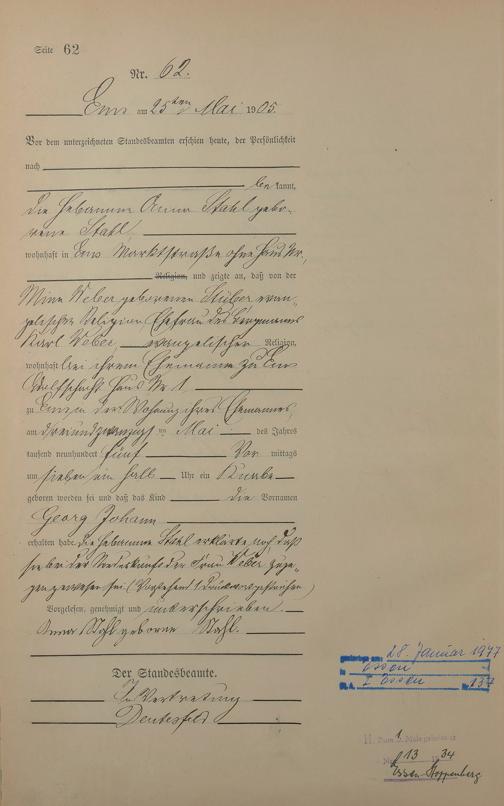 Seite 62
Nr. 62.
Ems am 25ten Mai 1905.
Vor dem unterzeichneten Standesbeamten erschien heute, der Persönlichkeit
nach
be kannt,
die Hebamme Anna Stahl gebo-
rene Stahl
wohnhaft in Ems Marktstraße ohne Haus Nr.,
Religion, und zeigte an, daß von der
Mina Weber geborenen Stüber evan-
gelischer Religion Ehefrau des Bergmanns
Karl Weber, evangelischer Religion,
wohnhaft bei ihrem Ehemanne zu Ems
Adolfschacht Haus Nr 1
zu Ems in der Wohnung ihres Ehemannes,
am dreiundzwanzigsten Mai des Jahres
tausend neunhundert fünf Vor mittags
um sieben ein halb Uhr ein Knabe
geboren worden sei und daß das Kind die Vornamen
Georg Johann
erhalten habe. Die Hebamme Stahl erklärte noch, daß
sie bei der Niederkunft der Frau Weber zuge-
gen gewesen sei. (Vorstehend 1 Druckwort gestrichen)
Vorgelesen, genehmigt und unterschrieben.
Anna Stahl geborne Stahl.
Der Standesbeamte.
In Vertretung
28. Januar 1977
in Essen
St.A. I Essen Nr. 137
H. Zum 1. Male geheiratet
Nr. 13 1934
Essen-Stoppenberg